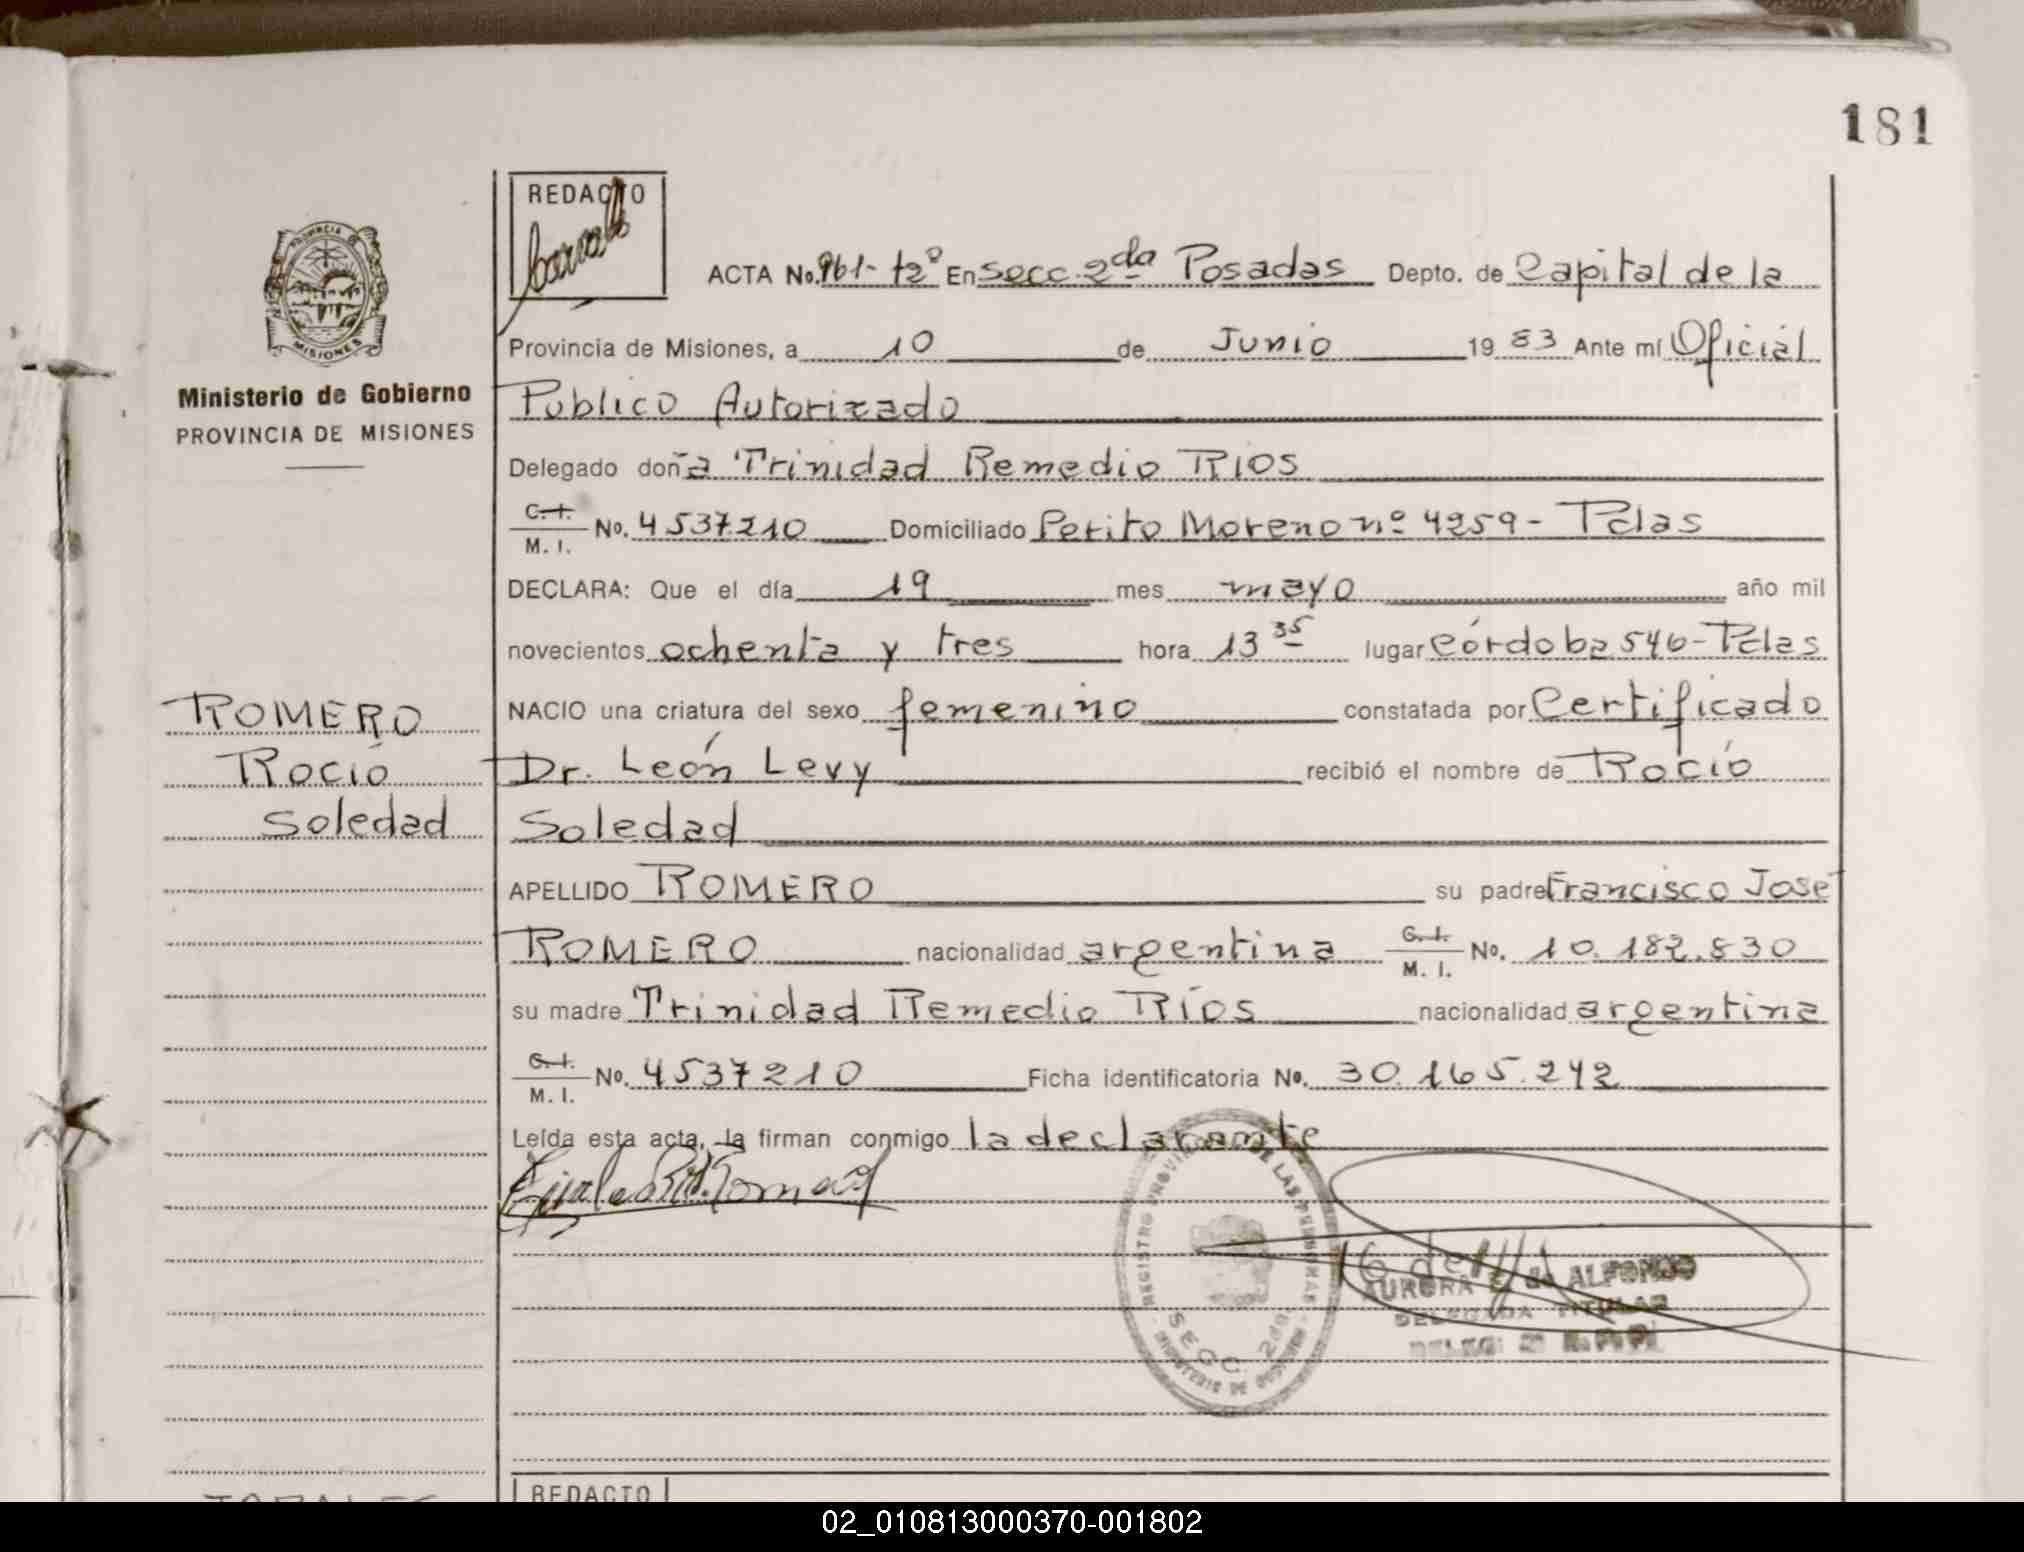 181
REDACTO
ACTA No. 961-t2º En Secc. 2da Posadas Depto. de Capital de la
PROVINCIA DE
MISIONES
Provincia de Misiones, a 10 de Junio 1983 Ante mí Oficial
Ministerio de Gobierno
PROVINCIA DE MISIONES
Público Autorizado
Delegado doña Trinidad Remedio RIOS
C.I.
M. I. No. 4537210 Domiciliado Perito Moreno nº 4259- Pdas
DECLARA: Que el día 19 mes mayo año mil
novecientos ochenta y tres hora 13 35 lugar Córdoba 546-Pdas
ROMERO
Rocío
Soledad
NACIO una criatura del sexo femenino constatada por Certificado
Dr. León Levy recibió el nombre de Rocío
Soledad
APELLIDO ROMERO su padre Francisco José
ROMERO nacionalidad argentina C.I.
M. I. No. 10.182.830
su madre Trinidad Remedio Ríos nacionalidad argentina
C.I.
M. I. No. 4537210 Ficha identificatoria No. 30.165.242
Leída esta acta, la firman conmigo la declarante
REGISTRO PROVINCIAL DE LAS PERSONAS
SECC. 2da.
MINISTERIO DE GOBIERNO
AURORA G. de ALFONSO
DELEGADA TITULAR
REDACTO
02_010813000370-001802